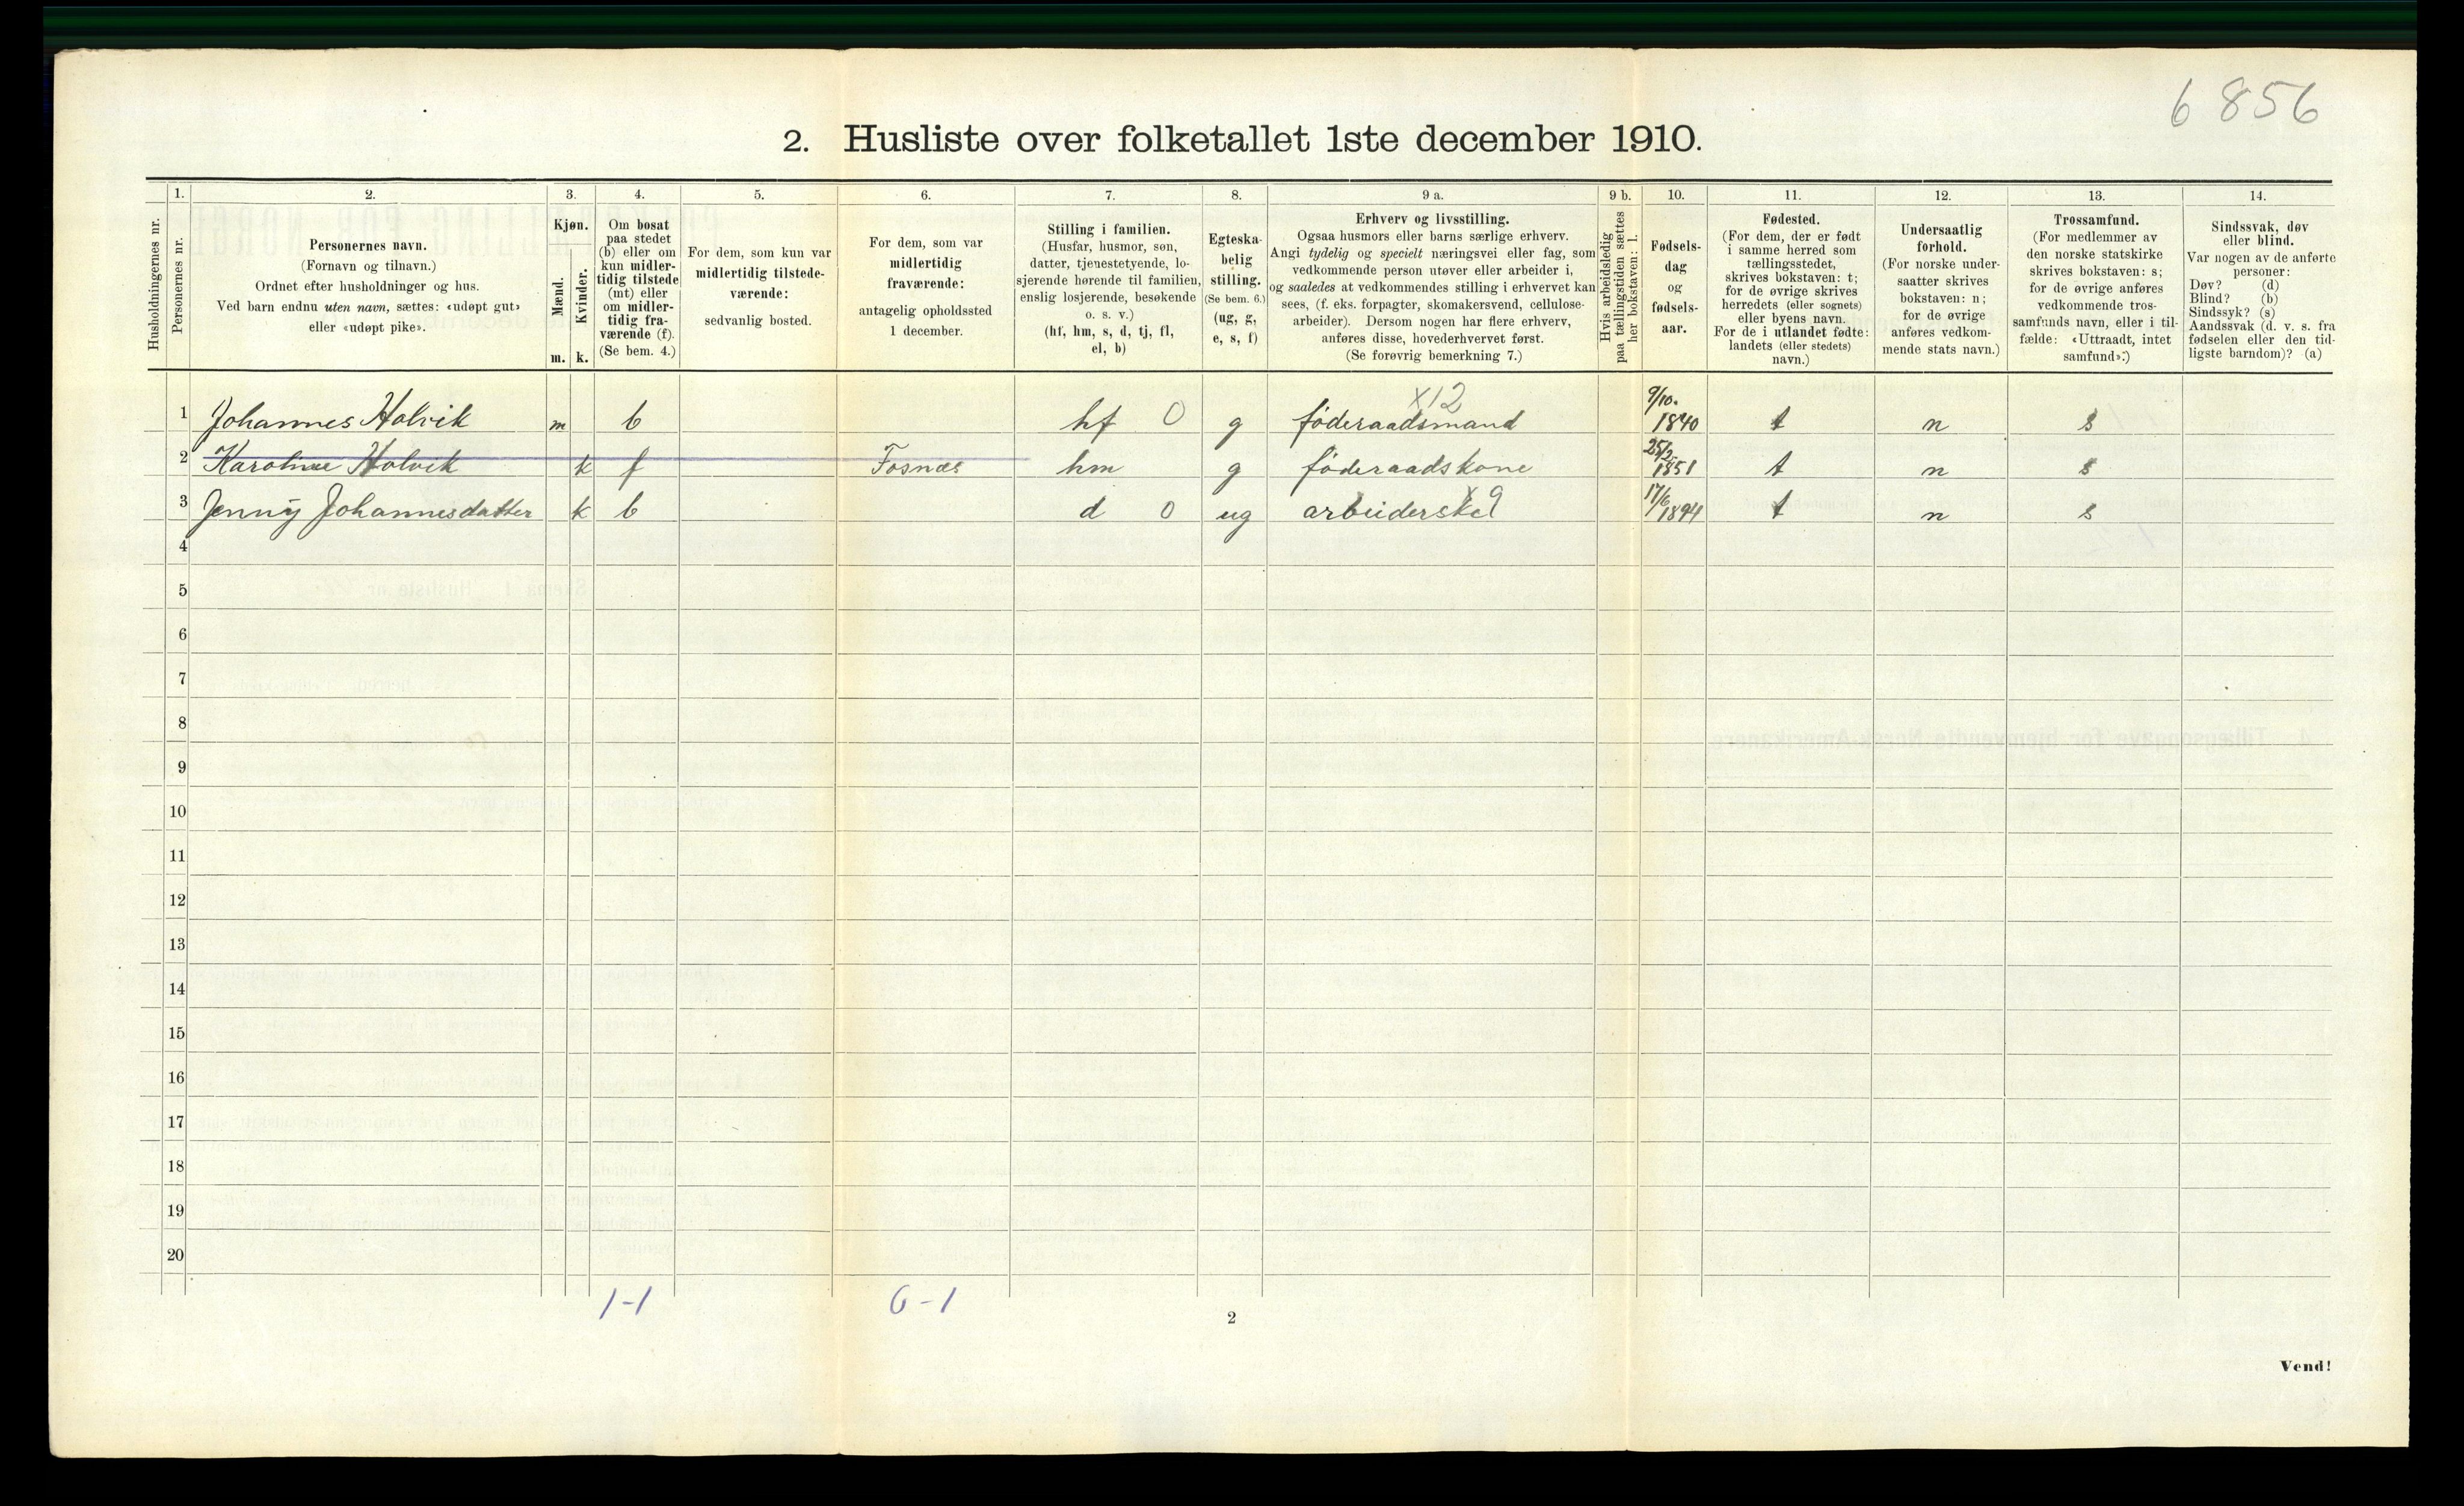 6 856
2. Husliste over folketallet 1ste december 1910.
Husholdningernes nr.
1.
Personernes nr.
2.
Personernes navn.
(Fornavn og tilnavn.)
Ordnet efter husholdninger og hus.
Ved barn endnu uten navn, sættes: «udøpt gut»
eller «udøpt pike».
3.
Kjøn.
Mænd.
Kvinder.
m. k.
4.
Om bosat
paa stedet
(b) eller om
kun midler-
tidig tilstede
(mt) eller
om midler-
tidig fra-
værende (f).
(Se bem. 4.)
5.
For dem, som kun var
midlertidig tilstede-
værende:
sedvanlig bosted.
6.
For dem, som var
midlertidig
fraværende:
antagelig opholdssted
1 december.
7.
Stilling i familien.
(Husfar, husmor, søn,
datter, tjenestetyende, lo-
sjerende hørende til familien,
enslig losjerende, besøkende
o. s. v.)
(hf, hm, s, d, tj, fl,
el, b)
8.
Egteska-
belig
stilling.
(Se bem. 6.)
(ug, g,
e, s, f)
9 a.
Erhverv og livsstilling.
Ogsaa husmors eller barns særlige erhverv.
Angi tydelig og specielt næringsvei eller fag, som
vedkommende person utøver eller arbeider i,
og saaledes at vedkommendes stilling i erhvervet kan
sees, (f. eks. forpagter, skomakersvend, cellulose-
arbeider). Dersom nogen har flere erhverv,
anføres disse, hovederhvervet først.
(Se forøvrig bemerkning 7.)
9 b.
Hvis arbeidsledig
paa tællingstiden sættes
her bokstaven: l.
10.
Fødsels-
dag
og
fødsels-
aar.
11.
Fødested.
(For dem, der er født
i samme herred som
tællingsstedet,
skrives bokstaven: t;
for de øvrige skrives
herredets (eller sognets)
eller byens navn.
For de i utlandet fødte:
landets (eller stedets)
navn.)
12.
Undersaatlig
forhold.
(For norske under-
saatter skrives
bokstaven: n;
for de øvrige
anføres vedkom-
mende stats navn.)
13.
Trossamfund.
(For medlemmer av
den norske statskirke
skrives bokstaven: s;
for de øvrige anføres
vedkommende tros-
samfunds navn, eller i til-
fælde: «Uttraadt, intet
samfund».)
14.
Sindssvak, døv
eller blind.
Var nogen av de anførte
personer:
Døv? (d)
Blind? (b)
Sindssyk? (s)
Aandssvak (d. v. s. fra
fødselen eller den tid-
ligste barndom)? (a)
1 Johannes Holvik m b hf 0 g føderaadsmand X12 9/10. 1840 t n s
2 Karoline Holvik k f Fosnæs hm g føderaadskone 25/2 1851 t n s
3 Jenny Johannesdatter k b d 0 ug X9 17/6 1894 t n s
4
5
6
7
8
9
10
11
12
13
14
15
16
17
18
19
20
1-1 0-1
2
Vend!